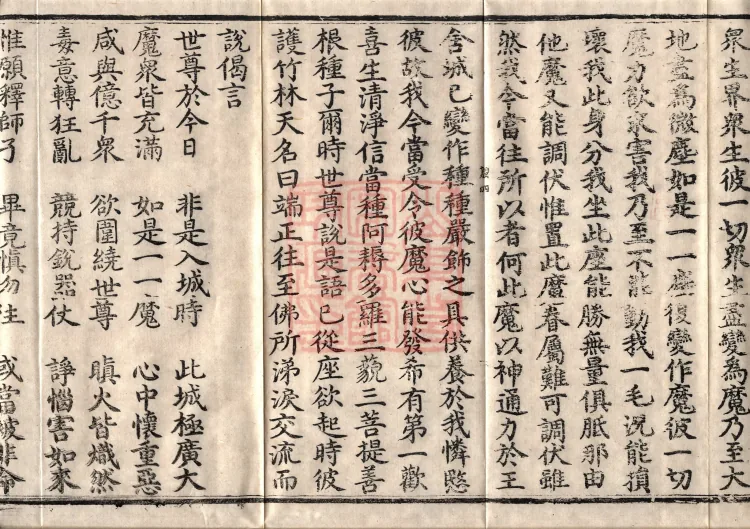 眾生界眾生彼一切眾生盡變為魔乃至大
地盡為微塵如是一一塵復變作魔彼一切
魔力欲來害我乃至不能動我一毛況能損
壞我此身分我坐此塵能勝無量俱胝那由
他魔又能調伏惟置此魔眷屬難可調伏雖
然我今當往所以者何此魔以神通力於王
舍城已變作種種嚴飾之具供養於我憐愍
彼故我今當受令彼魔心能發希有第一歡
喜生清淨信當種阿耨多羅三藐三菩提善
根種子爾時世尊說是語已從座欲起時彼
護竹林天名曰端正往至佛所涕淚交流而
說偈言
世尊於今日 非是入城時 此城極廣大
魔眾皆充滿 如是一一魔 心中懷重惡
咸與億千眾 欲圍繞世尊 瞋火皆熾然
毒意轉狂亂 競持銳器仗 諍惱害如來
惟願釋師子 畢竟慎勿往 或當被非命